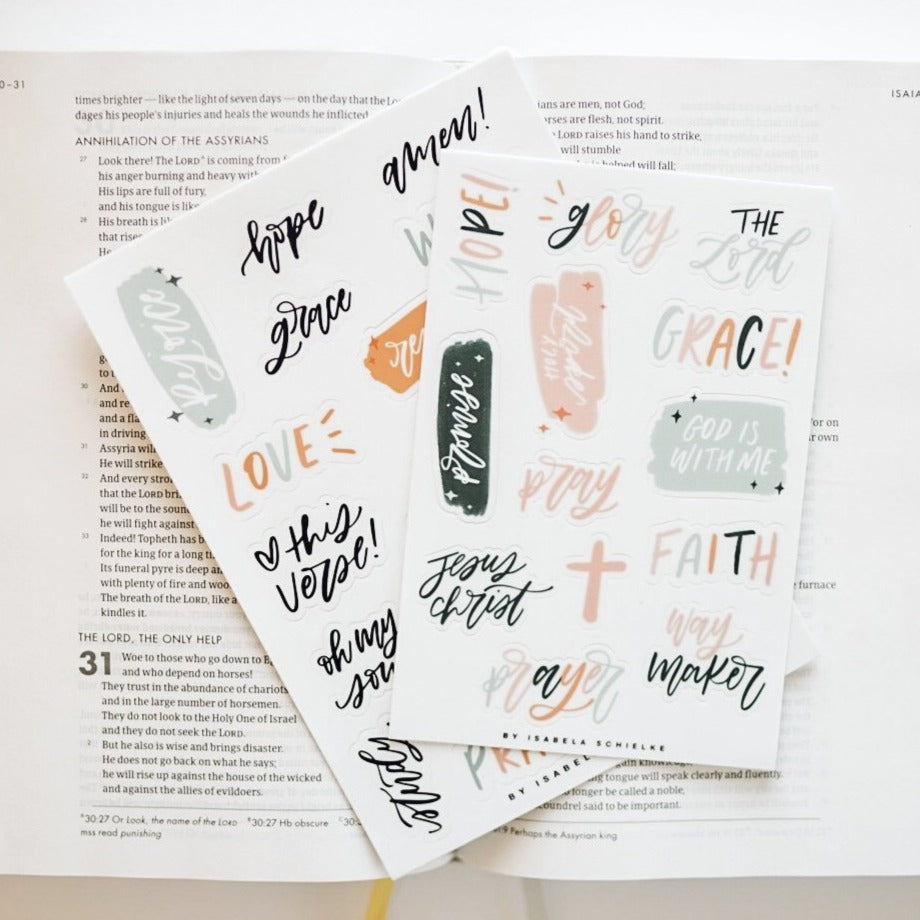 0–31
times brighter — like the light of seven days — on the day that the Lo
dages his people's injuries and heals the wounds he inflicted
ANNIHILATION OF THE ASSYRIANS
27 Look there! The LORD^A is coming from
his anger burning and heavy with
His lips are full of fury,
and his tongue is like
28 His breath is
that rises
He
to
30 And
and re
and a fla
in driving
31 Assyria will
He will strike
32 And every stro
that the LORD bri
will be to the sound
he will fight against
33 Indeed! Topheth has b
for the king for a long
Its funeral pyre is deep an
with plenty of fire and woo
The breath of the LORD, like a
kindles it.
THE LORD, THE ONLY HELP
31 Woe to those who go down to E
and who depend on horses!
They trust in the abundance of chariots
and in the large number of horsemen.
They do not look to the Holy One of Israel
and they do not seek the LORD.
2 But he also is wise and brings disaster.
He does not go back on what he says;
he will rise up against the house of the wicked
and against the allies of evildoers.
^A30:27 Or Look, the name of the LORD ^B30:27 Hb obscure ^C30:
mss read punishing
ISAIA
ians are men, not God;
orses are flesh, not spirit.
LORD raises his hand to strike,
will stumble
is helped will fall;
or on
r own
furnace
gain knowledge,
ng tongue will speak clearly and fluently.
o longer be called a noble,
oundrel said to be important.
1:9 Perhaps the Assyrian king
amen!
hope
grace
worship
re
LOVE
this
verse!
oh my
sou
study
PRA
BY ISABE
HOPE!
glory
THE
Lord
HOLY
GRACE!
promises
GOD IS
WITH ME
pray
FAITH
Jesus
Christ
way
maker
prayer
BY ISABELA SCHIELKE